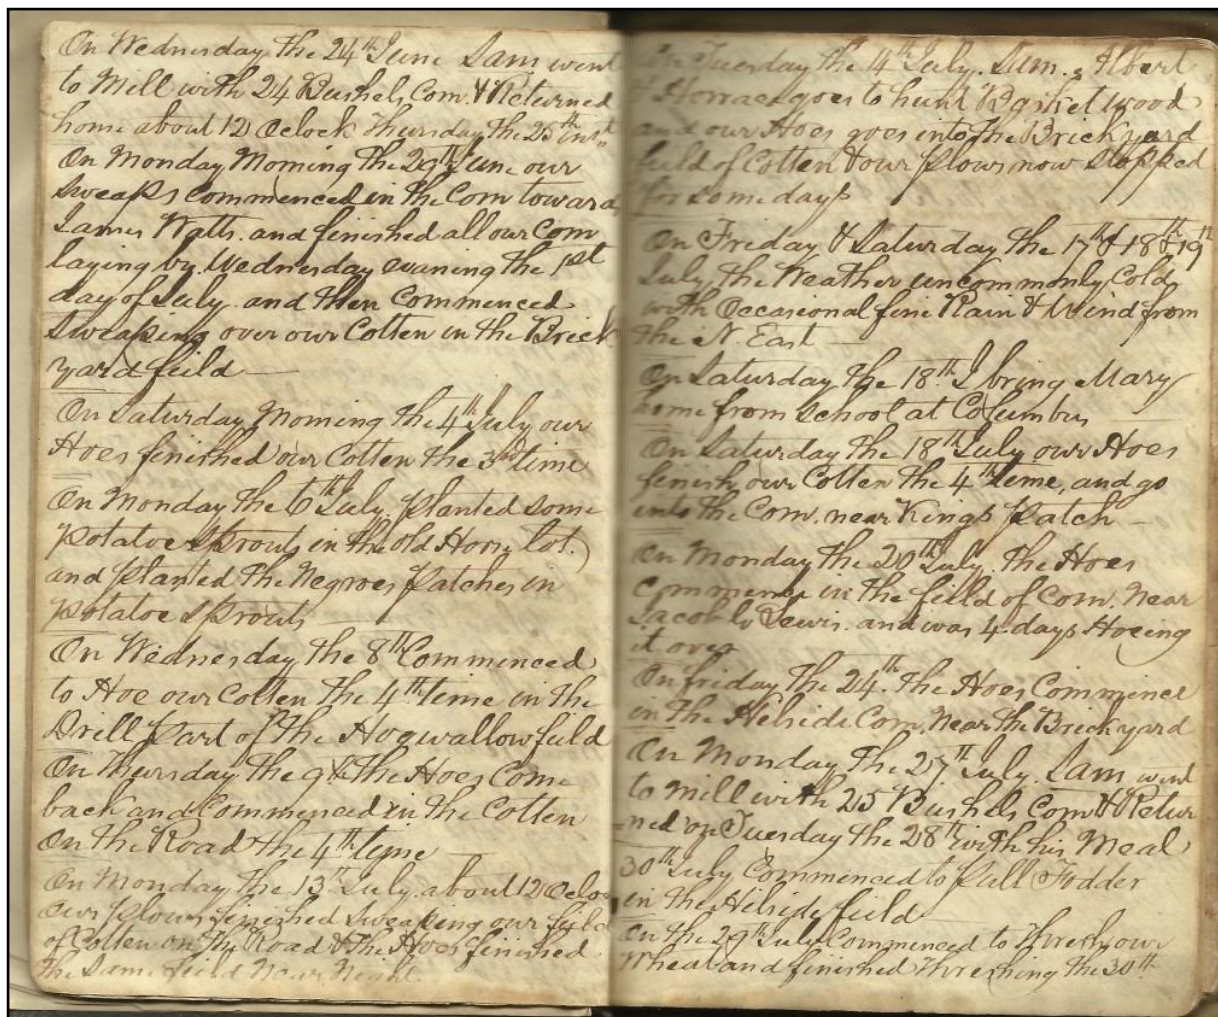 On Wednesday the 24th June Sam went
to Mill with 24 Bushels Corn & Returned
home about 12 Oclock Thursday the 25th inst
On Monday Morning the 29th June our
sweaps commenced in the Corn towards
James Watts. and finished all our Corn
laying by Wednesday evaning the 1st
day of July. and then Commenced
Sweaping over our Cotten in the Brick
yard feild —
On Saturday Morning the 4th July our
Hoes finished our Cotten the 3d time
On Monday the 6th July. planted some
potatoe Sprouts in the old Horse lot.
and planted the Negroes patches in
potatoe sprouts —
On Wednesday the 8th Commenced
to Hoe our Cotten the 4th time in the
Drill part of the Hogwallow feild
On Thursday the 9th the Hoes Come
back and Commenced in the Cotten
On the Road the 4th time —
On Monday the 13th July. about 12 Ocloc
Our plows finished sweaping our feild
of Cotten on the Road & the Hoes finished
the Same feild Near Night
On Tuesday the 14th July. Sam. Albert
& Horrace goes to hunt Basket wood
and our Hoes goes into the Brickyard
feild of Cotten & our plows now stopped
for some days
On Friday & Saturday the 17th & 18th & 19th
July the Weather uncommonly Cold
with Occasional fine Rain & Wind from
the N. East —
On Saturday the 18th I bring Mary
home from School at Columbus
On Saturday the 18th July our Hoes
finish our Cotten the 4th time, and go
into the Corn. near Kings patch —
On Monday the 20th July. the Hoes
Commence in the feild of Corn. Near
Jacob Lewis. and was 4 days Hoeing
it over
On friday the 24th the Hoes Commence
in the Hilside Corn. Near the Brickyard
On Monday the 27th July. Sam went
to mill with 25 Bushels Corn & Retur
-ned on Tuesday the 28th with his Meal
30th July Commenced to pull Fodder
in the Hilside feild —
On the 29th July Commenced to Thresh our
Wheat and finished threshing the 30th